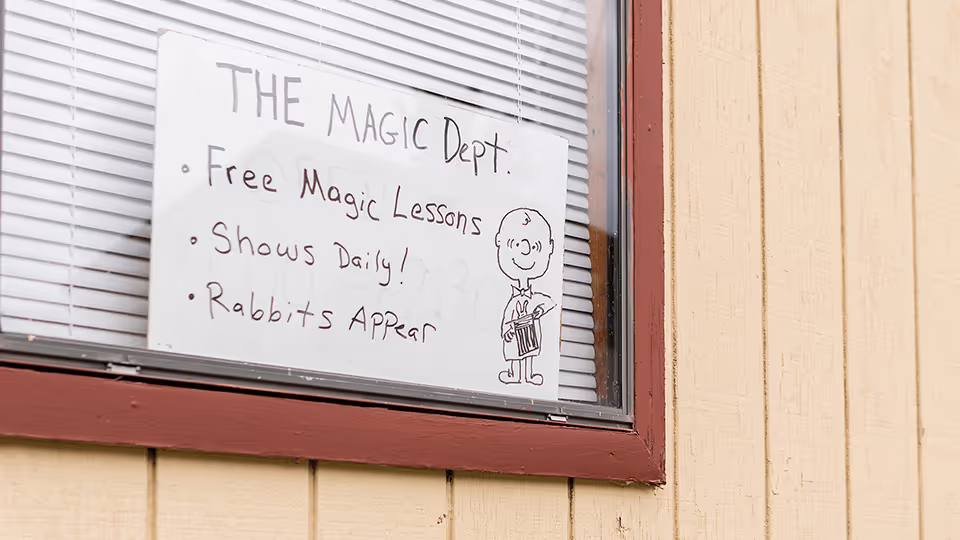 THE MAGIC Dept.
• Free Magic Lessons
• Shows Daily!
• Rabbits Appear